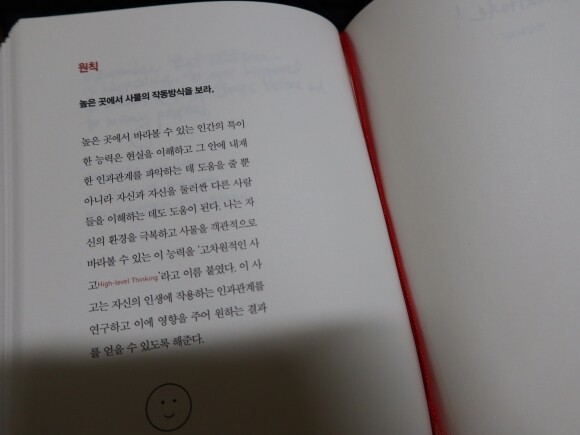 원칙
높은 곳에서 사물의 작동방식을 보라.
높은 곳에서 바라볼 수 있는 인간의 특이
한 능력은 현실을 이해하고 그 안에 내재
한 인과관계를 파악하는 데 도움을 줄 뿐
아니라 자신과 자신을 둘러싼 다른 사람
들을 이해하는 데도 도움이 된다. 나는 자
신의 환경을 극복하고 사물을 객관적으로
바라볼 수 있는 이 능력을 '고차원적인 사
고High-level Thinking'라고 이름 붙였다. 이 사
고는 자신의 인생에 작용하는 인과관계를
연구하고 이에 영향을 주어 원하는 결과
를 얻을 수 있도록 해준다.